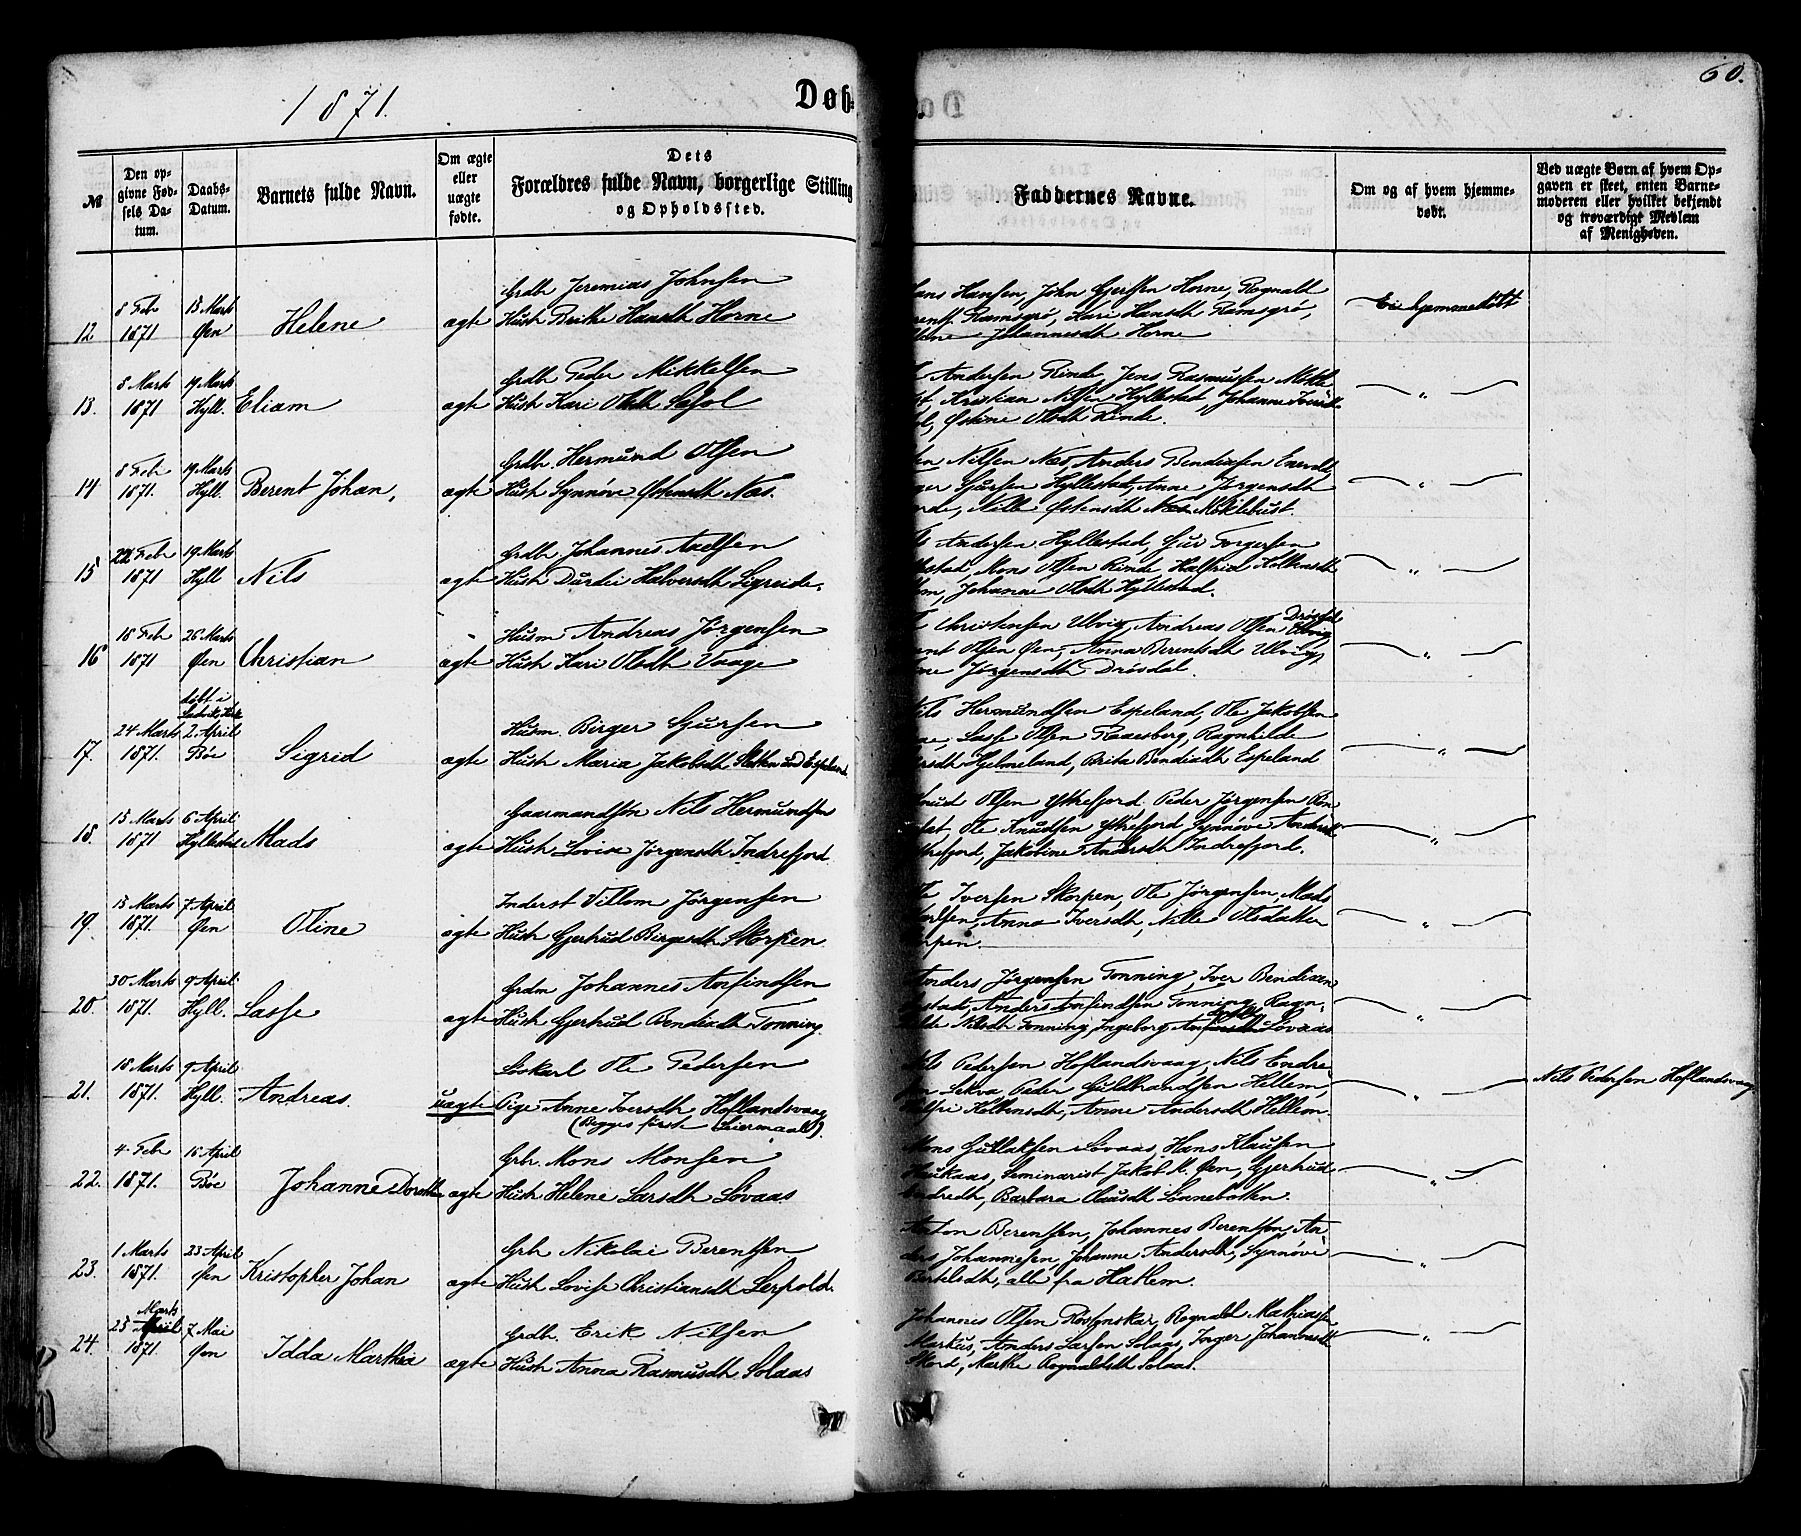 1871.
Døb-
60.
№
Den op-
givne Fød-
sels Da-
tum.
Daabs-
Datum.
Barnets fulde Navn.
Om ægte
eller
uægte
fødte.
Dets
Forældres fulde Navn, borgerlige Stilling
og Opholdssted.
Faddernes Navne.
Om og af hvem hjemme-
døbt.
Ved uægte Børn af hvem Op-
gaven er skeet, enten Barne-
moderen eller hvilket bekjendt
og troværdigt Medlem
af Menigheden.
12
8 Feb
1871
15 Marts
Øen
Helene
ægte
Grdb Jeremias Johnsen
Hust Brithe Hansdh Horne
Hans Hansen, John Gjertsen Horne, Rognald
Ramsgrø, Kari Hansdh Ramsgrø,
Johannesdh Horne
Ei hjemmedøbt
13.
8 Marts
1871
19 Marts
Hyll.
Eliam
ægte
Grdb Peder Mikkelsen
Hust Kari Olsdh
Andersen Rinde, Jens Rasmussen Møkle-
Kristian Nilsen Hyllestad, Johanne
Østine Olsdh Rinde.
"
14
8 Feb
1871.
19 Marts
Hyll.
Berent Johan,
ægte
Grdb. Hermund Olsen
Hust Synnøve Østensdh Næs.
Nilsen Næs, Anders Bendixsen
Gjursen Hyllestad, Anne Jørgensdh
Nille Østensdh Møklebust.
"
15
22 Feb
1871
19 Marts
Hyll
Nils
ægte
Grdb. Johannes Axelsen
Hust Durdei Halversdh Sigreide.
Andersen Hyllestad, Gjur Torgersen
Mons Olsen Rinde
Johanne Olsdh Hyllestad.
"
16
18 Feb
1871
26 Marts
Øen
Christian
ægte
Husm Andreas Jørgensen
Hust Kari Olsdh Vaage
Christensen Ulvig, Andreas Olsen Drøsdal
Olsen Øen, Anna Berentsdh Ulvig,
Jørgensdh Drøsdal
"
17.
24 Marts
1871.
døbt i
Ladvik Kirke
2 April
Bøe
Sigrid
ægte
Husm. Birger Gjursen
Hust Maria Jakobsdh Slotten und Espeland
Nils Hermundsen Espeland, Ole Jakobsen
Lasse Olsen Raaesberg, Ragnhilde
Hjelmeland, Brita Bendixdh Espeland
"
18.
15 Marts
1871
6 April
Hyllestad
Mads
ægte
Gaarmandssøn Nils Hermundsen
Hust Lovise Jørgensdh Indrefjord.
Knud Olsen Ytrefjord, Peder Jørgensen
Ole Knudsen Ytrefjord, Synnøve Andersdh
Ytrefjord, Jakobine Andersdh Indrefjord.
"
19.
15 Marts
1871.
7 April
Øen
Oline
ægte
Inderst Villom Jørgensen
Hust Gjertrud Birgesdh Skorpen.
Ole Iversen Skorpen, Ole Jørgensen, Mads
Anna Iversdh, Nille Olsdatter
Skorpen.
"
20.
30 Marts
1871.
9 April
Hyll.
Lasse
ægte
Grdm Johannes Anfindsen
Hust Gjertrud Bendixdh Tonning.
Anders Jørgensen Tonning, Iver Bendixen
Anders Anfindsen Tonning, Ragn-
hilde Nilsdh Tonning, Ingeborg Løvaas
"
21.
18 Marts
1871.
9 April
Hyll.
Andreas.
uægte
Løskarl Ole Pedersen
Pige Anne Iversdh Hoflandsvaag
(Begges første Leiermaal).
Nils Pedersen Hoflandsvaag, Nils Endre-
sen Lekva, Peder Guldbrandsen Hellem,
Anne Andersdh Hellem.
"
Nils Pedersen Hoflandsvaag
22.
4 Feb
1871.
16 April
Bøe
Johanne Dorothea
ægte
Grb. Mons Monsen
Hust Helene Larsdh Løvaas
Mons Gullaksen Løvaas, Hans Klausen
Haukaas, Seminarist Jakob M. Øen, Gjertrud
Endredh, Barbara Olausdh Lønnebotten.
"
23.
1 Marts
1871.
23 April
Øen
Kristopher Johan
ægte
Grb Nikolai Berentsen
Hust Lovise Christiansdh Leepold.
Anton Berentsen, Johannes Berentsøn, An-
ders Johannesen, Johanne Andersdh, Synnøve
Bertelsdh, alle fra Hatlem.
"
24.
Marts
25 April
1871.
7 Mai
Øen
Idda Marthea
ægte
Grdb. Erik Nilsen
Hust Anna Rasmusdh Solaas
Johannes Olsen Risnskar, Rognald Mathiassen
Markus, Anders Larsen Solaas, Inger Johannesdh
Skord, Marthe Rognaldsdh Solaas.
"